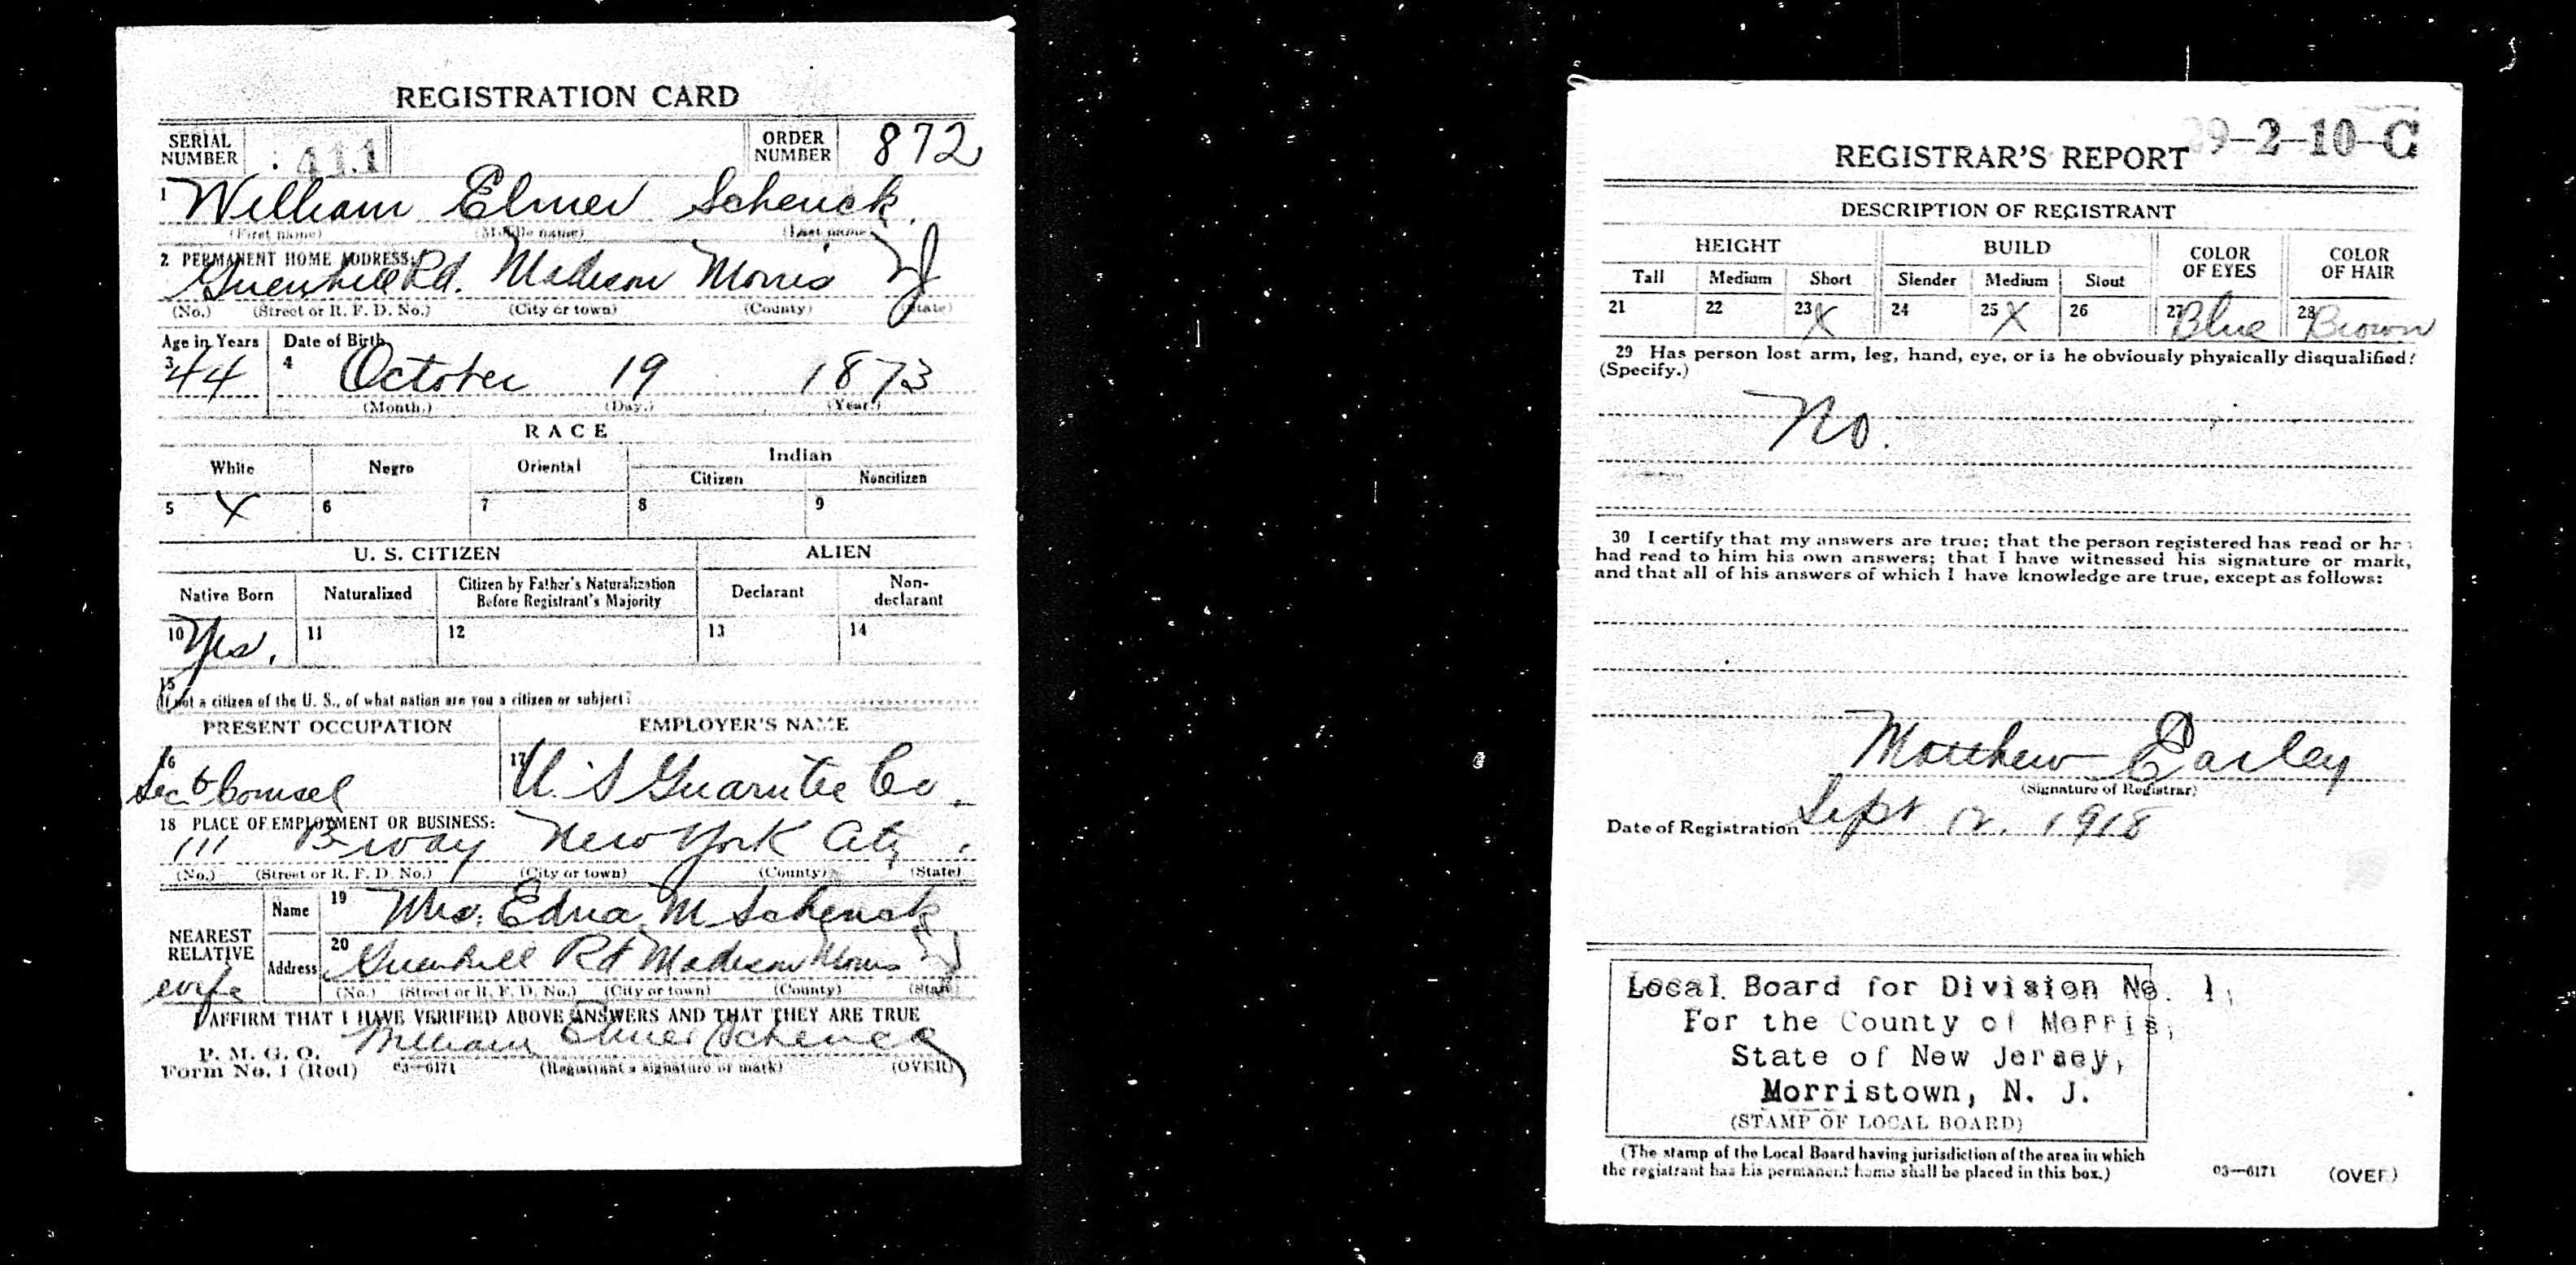 REGISTRATION CARD
SERIAL NUMBER 411 ORDER NUMBER 872
1 William Elmer Schenck.
(First name) (Middle name) (Last name)
2 PERMANENT HOME ADDRESS:
Greenhill Rd. Madison Morris NJ
(No.) (Street or R. F. D. No.) (City or town) (County) (State)
Age in Years Date of Birth
3 44 4 October 19 1873
(Month.) (Day.) (Year.)
RACE
White Negro Oriental Indian
Citizen Noncitizen
5 X 6 7 8 9
U. S. CITIZEN ALIEN
Native Born Naturalized Citizen by Father's Naturalization Before Registrant's Majority Declarant Non-declarant
10 Yes. 11 12 13 14
15
If not a citizen of the U. S., of what nation are you a citizen or subject?
PRESENT OCCUPATION EMPLOYER'S NAME
16 Counsel 17 U. S Guarntee Co.
18 PLACE OF EMPLOYMENT OR BUSINESS:
111 B-way New York City.
(No.) (Street or R. F. D. No.) (City or town) (County) (State)
NEAREST RELATIVE Name 19 Mrs. Edna M Schenck
wife Address 20 Greenhill Rd Madison Morris NJ
(No.) (Street or R. F. D. No.) (City or town) (County) (State)
I AFFIRM THAT I HAVE VERIFIED ABOVE ANSWERS AND THAT THEY ARE TRUE
P. M. G. O.
Form No. 1 (Red) 03—6171 William Elmer Schenck
(Registrant's signature or mark) (OVER)
9-2-10-C
REGISTRAR'S REPORT
DESCRIPTION OF REGISTRANT
HEIGHT BUILD COLOR OF EYES COLOR OF HAIR
Tall Medium Short Slender Medium Stout
21 22 23 X 24 25 X 26 27 Blue 28 Brown
29 Has person lost arm, leg, hand, eye, or is he obviously physically disqualified?
(Specify.)
No.
30 I certify that my answers are true; that the person registered has read or has
had read to him his own answers; that I have witnessed his signature or mark,
and that all of his answers of which I have knowledge are true, except as follows:
Matthew Earley
(Signature of Registrar)
Date of Registration Sept 12. 1918
Local Board for Division No. 1,
For the County of Morris,
State of New Jersey,
Morristown, N. J.
(STAMP OF LOCAL BOARD)
(The stamp of the Local Board having jurisdiction of the area in which
the registrant has his permanent home shall be placed in this box.)
03—6171 (OVER)